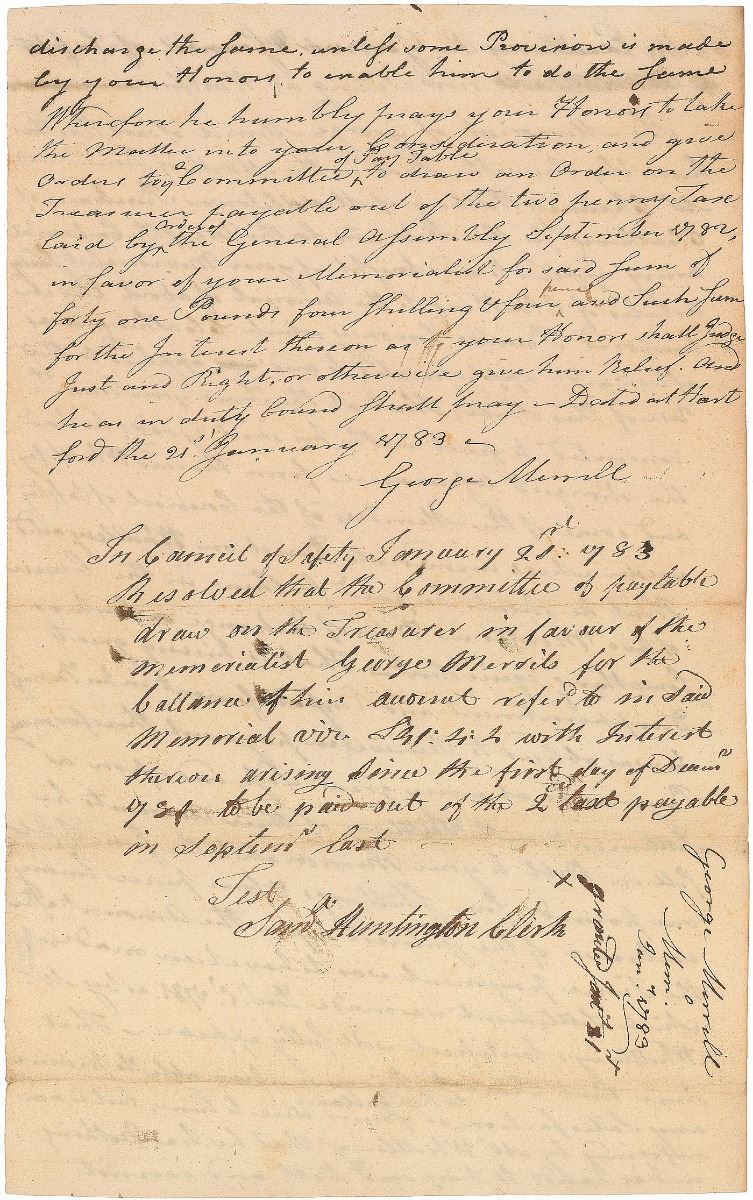 discharge the same, unless some Provision is made
by your Honors, to enable him to do the same
Wherefore he humbly prays your Honors to take
the Matter into your Consideration, and give
of Pay Table
Orders to ye Committee ^ to draw an Order on the
Treasurer payable out of the two penny Tax
Order of
laid by ^ the General Assembly September 1782,
in favor of your Memorialist for said Sum of
pence
forty one Pounds four Shilling & four ^ and Such Sum
for the Interest thereon as your Honors shall Judge
Just and Right, or otherwise give him Relief. And
he as in duty bound Shall pray — Dated at Hart
ford the 21st January 1783 —
George Merrill
In Council of Safety January 21st: 1783
Resolved that the Committee of paytable
draw on the Treasurer in favour of the
Memorialist George Merrils for the
ballance of his account referd to in Said
Memorial viz £41: 4: 4 with Interest
thereon arising Since the first day of Decemr
1781 to be paid out of the 2d tax payable
in Septemr last
Test
Saml Huntington Clerk
x
granted Jany 21st
George Merrill
Memo
Jany 1783